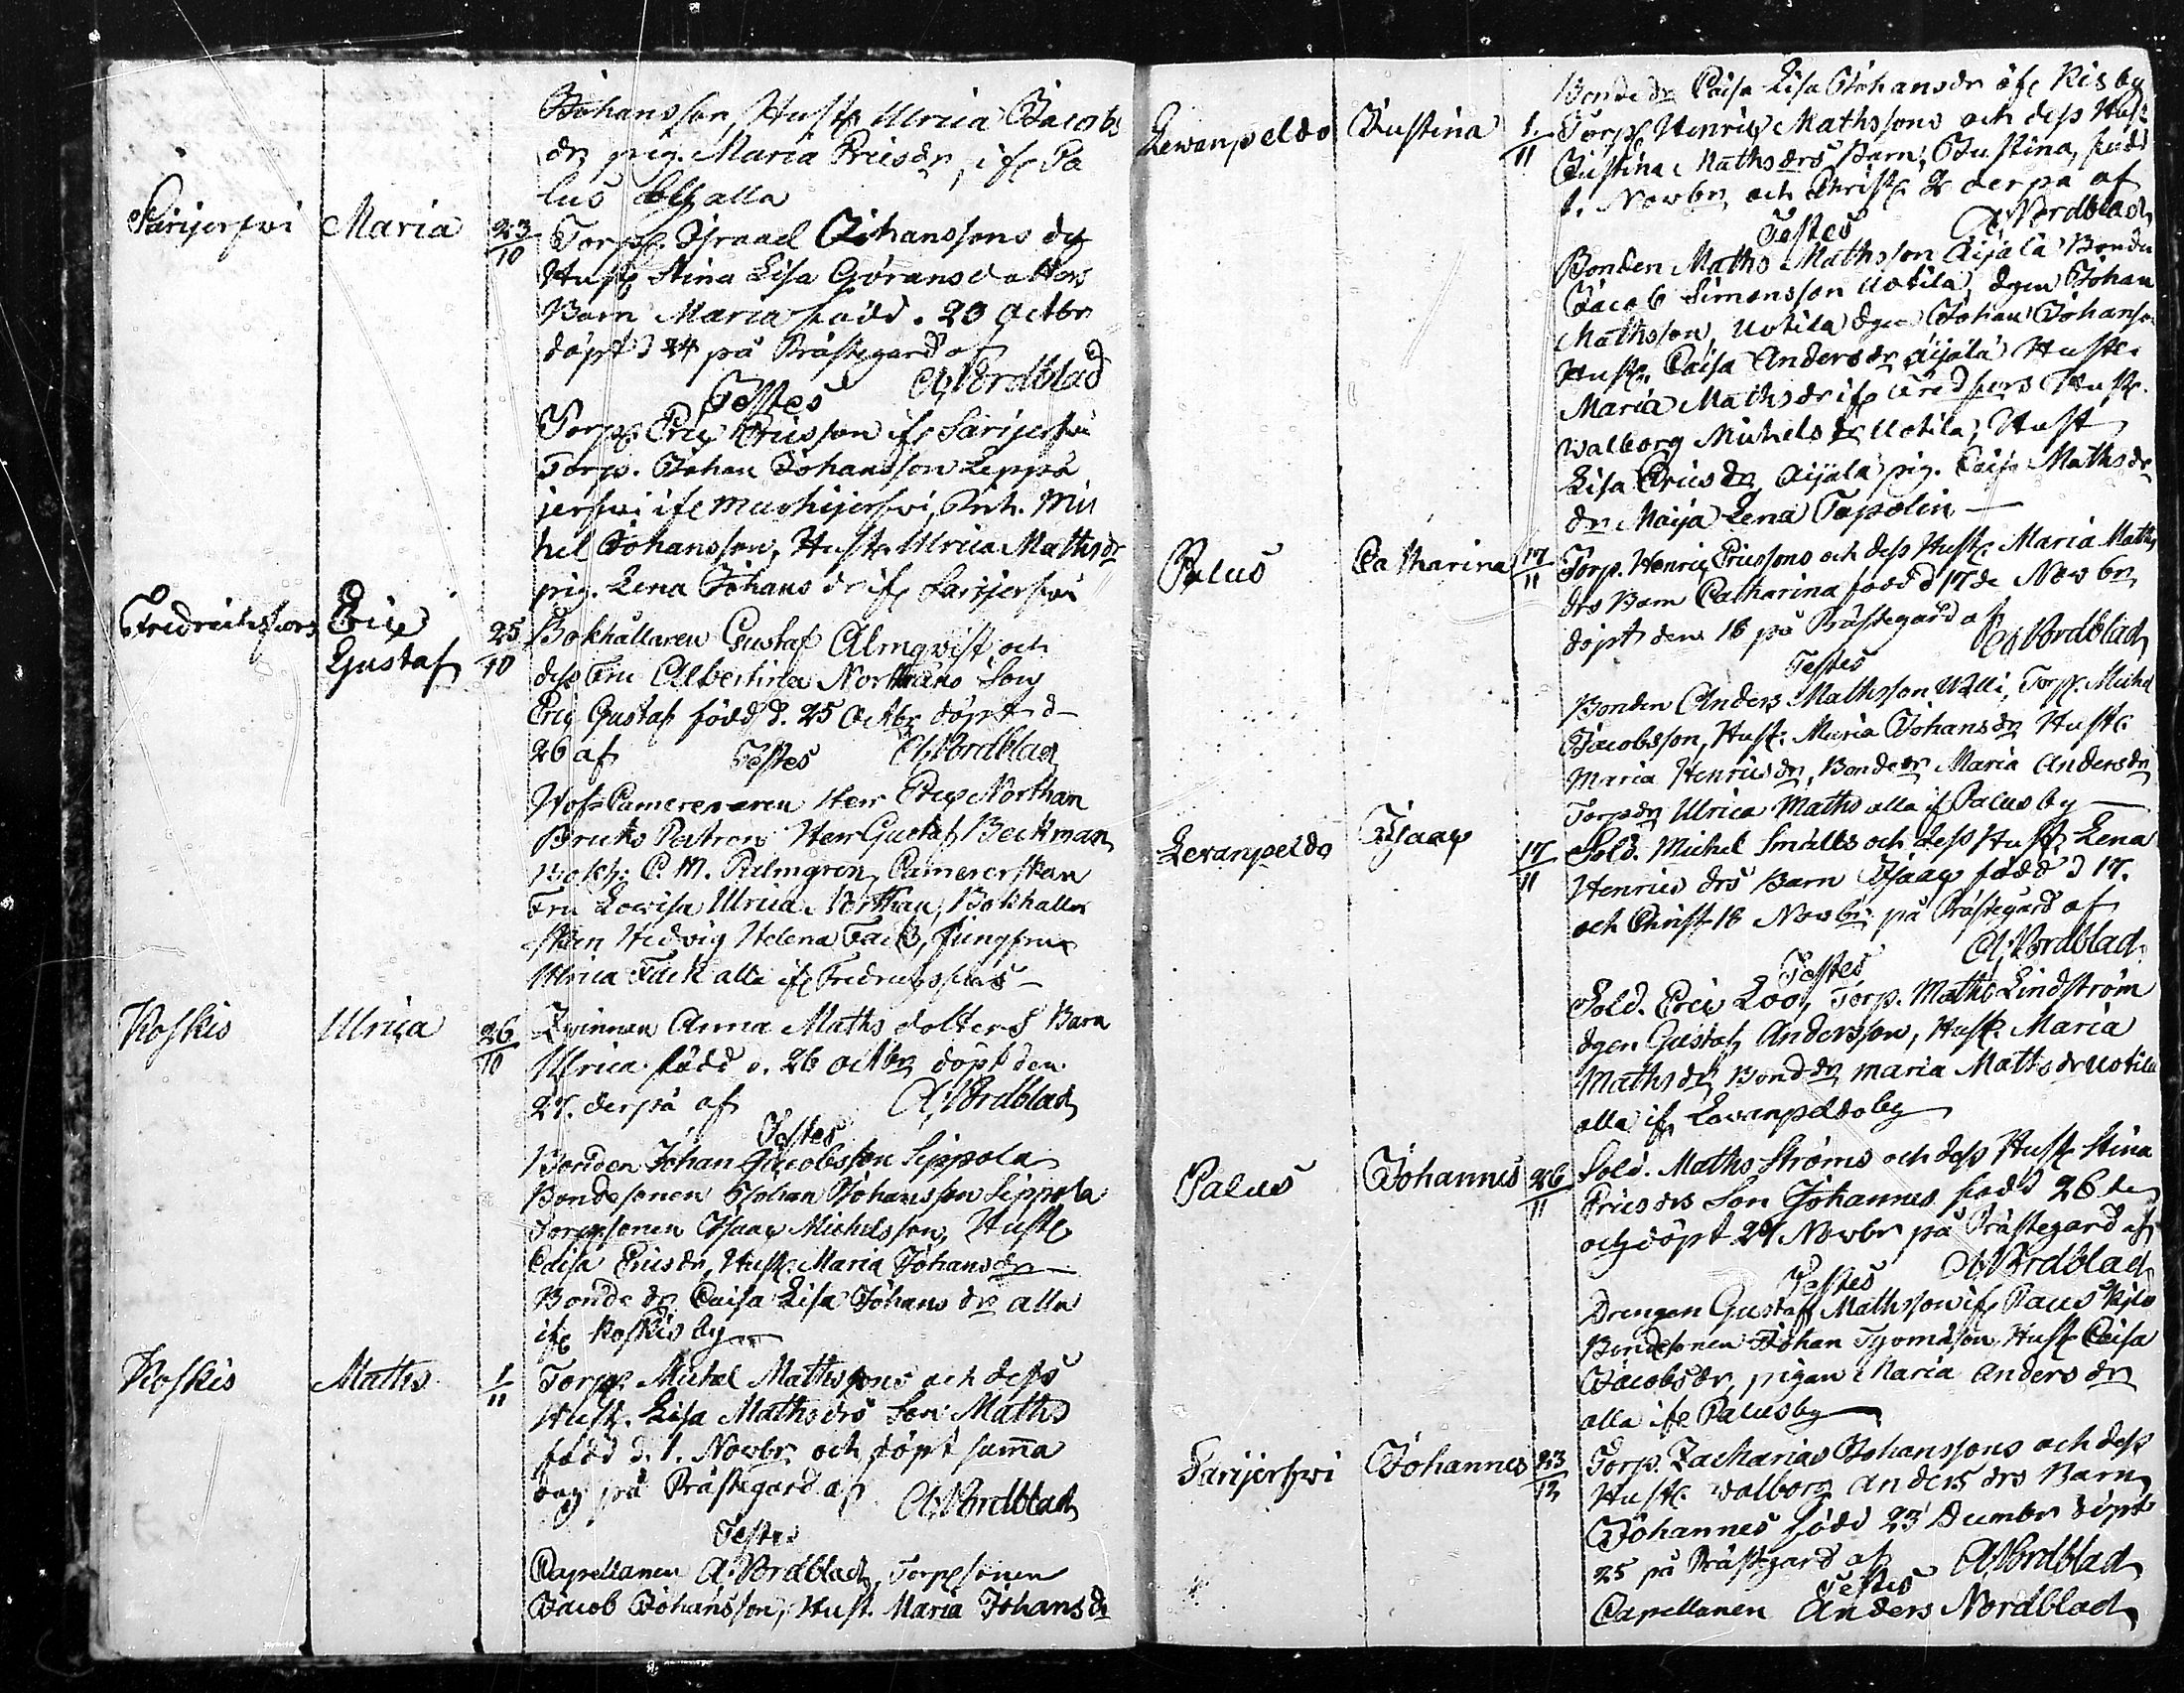 Johansson, Hust. Ulrica Jacobs
dr, pig. Maria Ericsdr, if. Pa
lus by alla
Särijerfwi Maria 23/10 Torp. Israel Johanssons dg
Hust. Stina Lisa Göransdotters
Barn Maria född. 23 Octbr
döpt d 24 på Prästegård af
Testes A. Nordblad
Torp. Eric Ericsson if. Särijerfwi
Torp. Johan Johansson Leppä
jerfwi if. Mushijerfwi, Inh. Mic
hel Johansson, Hust. Ulrica Mathsdr
pig. Lena Johansdr if. Särijerfwi
Fredrichsfors Eric Gustaf 25/10 Bokhållaren Gustaf Almqvist och
dess Fru Albertina Northans Son
Eric Gustaf född d. 25 Octbr döpt d
26 af Testes A. Nordblad
Hof-Camereraren Herr Eric Northan
Bruks Patron Herr Gustaf Beckman
Bokh: C. M. Palmgren, Camererskan
Fru Lovisa Ulrica Northan, Bokhaller
skan Hedvig Helena Fack, Jungfru
Ulrica Fack alla if. Fredricsfors
Koskis Ulrica 26/10 Qvinnan Anna Maths dotters Barn
Ulrica född d. 26 Octbr döpt den
27. derpå af A. Nordblad
Testes
Bonden Johan Jacobsson Sippola
Bondesonen Johan Johansson Sippola
Torpsonen Isaac Michelsson, Hust.
Caisa Ericsdr, Hust. Maria Johansdr
Bondedr Caisa Lisa Johansdr alla
if. Koskis by
Koskis Maths 1/11 Torp. Michel Mathssons och dess
Hust. Lisa Mathsdrs Son Maths
född d. 1. Novbr och döpt samma
dag på Prästegård af A. Nordblad
Testes
Capellanen A. Nordblad, Torpsonen
Jacob Johansson, Hust. Maria Johansdr
Bondedr Caisa Lisa Johansdr if. Kis by
Lewanpeldo Justina 1/11 Torp. Henric Mathssons och dess Hust.
Justina Mathsdrs Barn, Justina, född
1. Novbr och Christ. 2 derpå af
Testes A. Nordblad
Bonden Maths Mathsson Äijälä Bonden
Jacob Simonsson Uotila, dgen Johan
Mathsson, Uotila dgen Johan Johansson
Hust. Caisa Andersdr Äijälä Hust.
Maria Mathsdr if. Fredfors Hust.
Walborg Michelsdr Uotila, Hust.
Lisa Ericsdr, Äijälä pig. Caisa Mathsdr
dr Maija Lena Tapolin
Palus Catharina 17/11 Torp. Henric Ericssons och dess Hust. Maria Maths
drs Barn Catharina född d 17de Novbr
döpt den 18 på Prästegård af
Testes A. Nordblad
Bonden Anders Mathsson Wälli, Torp. Michel
Jacobsson, Hust. Maria Johansdr Hust.
Maria Henricsdr, Bondedr Maria Andersdr
Torpdr Ulrica Maths alla if Palus by
Levanpeldo Isaac 17/11 Sold. Michel Smålls och dess Hust. Lena
Henrics drs Barn Isaac född d 17.
och Christ 18 Novbr. på Prästegård af
Testes A. Nordblad
Sold. Eric Loo, Torp. Maths Lindström
dgen Gustaf Andersson, Hust. Maria
Mathsdr, Bonddr Maria Mathsdr Uotila
alla if. Levanpeldo by
Palus Johannes 26/11 Sold. Maths Ströms och dess Hust. Stina
Ericsdrs Son Johannes född 26de
och döpt 27 Novbr på Prästegård af
Testes A. Nordblad
Drengen Gustaf Mathsson if.
Bondesonen Johan Hust. Caisa
Jacobsdr, pigan Maria Andersdr
alla if. Palus by
Sarijerfwi Johannes 23/12 Torp. Zacharias Johanssons och dess
Hust. Walborg Andersdrs Barn
Johannes född 23 Decembr döpt
25 på Prästgård af A. Nordblad
Testes
Capellanen Anders Nordblad